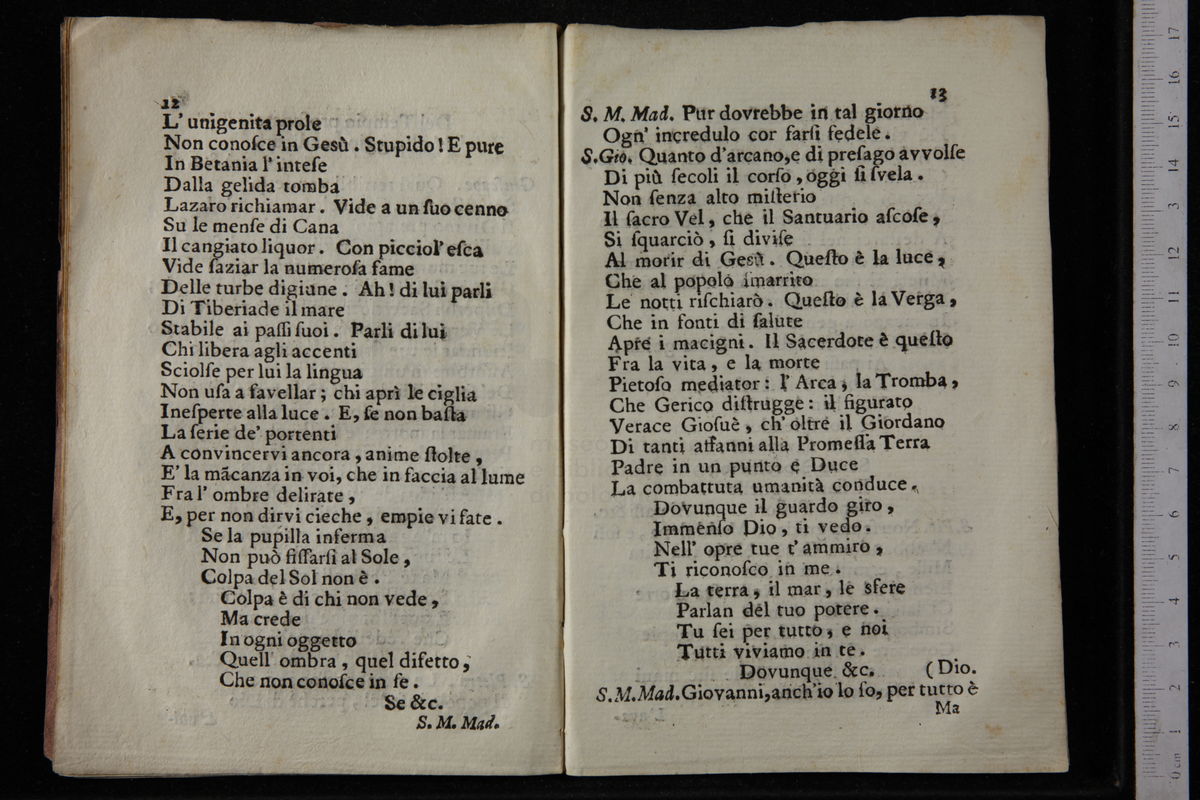 12
L' unigenita prole
Non conoſce in Gesù . Stupido ! E pure
In Betania l' inteſe
Dalla gelida tomba
Lazaro richiamar . Vide a un ſuo cenno
Su le menſe di Cana
Il cangiato liquor . Con picciol' eſca
Vide ſaziar la numeroſa fame
Delle turbe digiune . Ah ! di lui parli
Di Tiberiade il mare
Stabile ai paſſi ſuoi . Parli di lui
Chi libera agli accenti
Sciolſe per lui la lingua
Non uſa a favellar ; chi aprì le ciglia
Ineſperte alla luce . E, ſe non baſta
La ſerie de' portenti
A convincervi ancora , anime ſtolte ,
E' la mãcanza in voi, che in faccia al lume
Fra l' ombre delirate ,
E, per non dirvi cieche , empie vi fate .
Se la pupilla inferma
Non può fiſſarſi al Sole ,
Colpa del Sol non è .
Colpa è di chi non vede ,
Ma crede
In ogni oggetto
Quell' ombra , quel difetto ,
Che non conoſce in ſe .
Se &c.
S. M. Mad.
13
S. M. Mad. Pur dovrebbe in tal giorno
Ogn' incredulo cor farſi fedele .
S.Gio. Quanto d'arcano,e di preſago avvolſe
Di più ſecoli il corſo , oggi ſi ſvela .
Non ſenza alto miſterio
Il ſacro Vel , che il Santuario aſcoſe ,
Si ſquarciò , ſi diviſe
Al morir di Gesù . Queſto è la luce ,
Che al popolo ſmarrito
Le notti riſchiarò . Queſto è la Verga ,
Che in fonti di ſalute
Apre i macigni . Il Sacerdote è queſto
Fra la vita , e la morte
Pietoſo mediator : l' Arca , la Tromba ,
Che Gerico diſtrugge : il figurato
Verace Gioſuè , ch' oltre il Giordano
Di tanti affanni alla Promeſſa Terra
Padre in un punto e Duce
La combattuta umanità conduce .
Dovunque il guardo giro ,
Immenſo Dio , ti vedo .
Nell' opre tue t' ammiro ,
Ti riconoſco in me .
La terra , il mar , le sfere
Parlan del tuo potere .
Tu ſei per tutto , e noi
Tutti viviamo in te .
Dovunque &c. (Dio.
S.M.Mad.Giovanni,anch'io lo ſo, per tutto è
Ma
17
16
15
14
13
12
11
10
9
8
7
6
5
4
3
2
1
0 cm